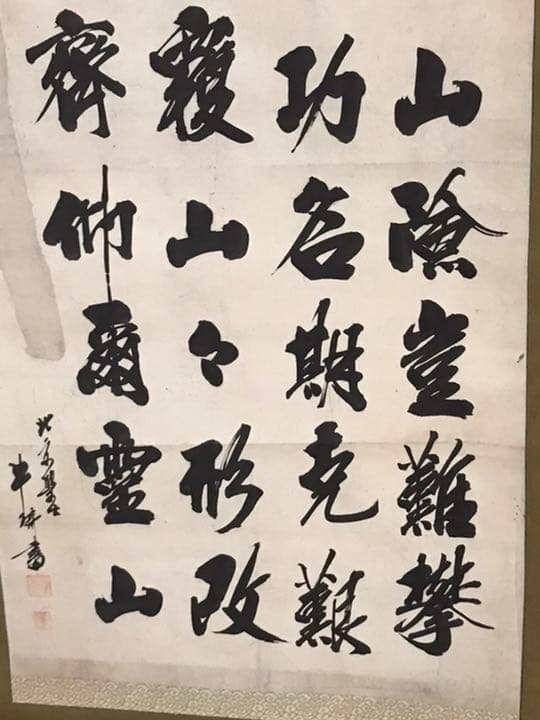 山險豈難攀
功名期克艱
覆山々形改
齊仰爾靈山
北京學
書